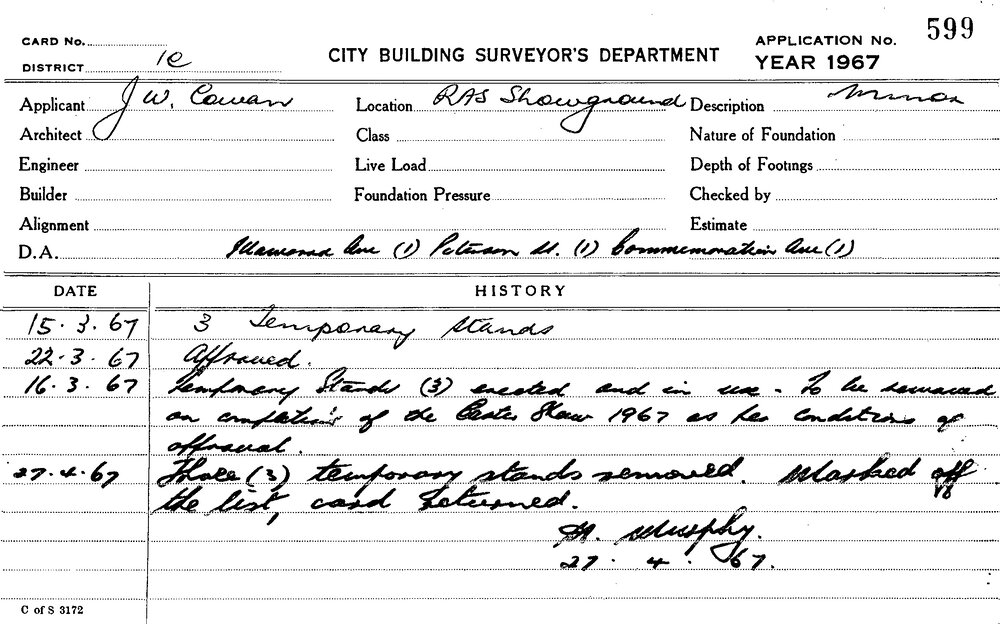 CARD No.
DISTRICT 1e
CITY BUILDING SURVEYOR'S DEPARTMENT
APPLICATION No. 599
YEAR 1967
Applicant J W. Cowan Location RAS Showground Description Minor
Architect Class Nature of Foundation
Engineer Live Load Depth of Footings
Builder Foundation Pressure Checked by
Alignment Estimate
D.A. Ave (1) St. (1) Commemoration Ave (1)
DATE HISTORY
15.3.67 3 Temporary stands
22.3.67 Approved.
16.3.67 Temporary Stands (3) erected and in use - To be removed
on completion of the Easter Show 1967 as per conditions of
approval.
27.4.67 Three (3) temporary stands removed. Marked off
the list, card returned.
Murphy.
27.4.67.
C of S 3172